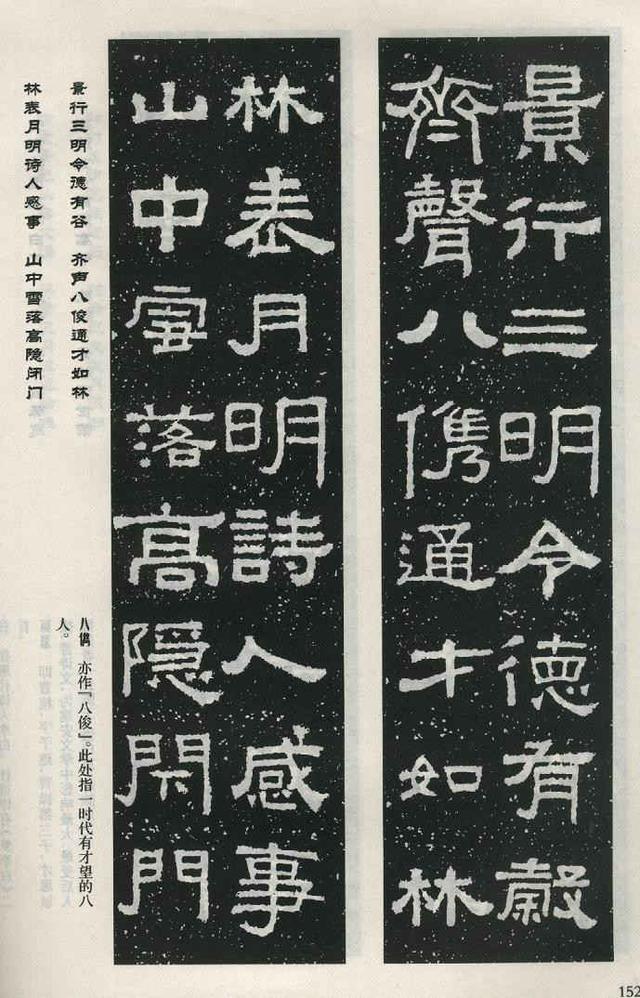 景行三明令德有穀
齊聲八儁通才如林
林表月明詩人感事
山中雪落高隱閉門
景行三明令德有谷 齐声八俊通才如林
林表月明诗人感事 山中雪落高隐闭门
八儁 亦作「八俊」。此处指一时代有才望的八
人。
152